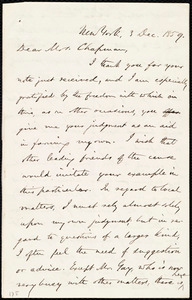 New York. 3 Dec. 1859.
Dear Mrs. Chapman,
I thank you for your
note just received, and I am especially
gratified by the freedom with which in
this, as on other occasions, you
give me your judgment as an aid
in forming my own. I wish that
other leading friends of the cause
would imitate your example in
this particular. In regard to local
matters, I must rely almost wholly
upon my own judgment but in re-
gard to questions of a larger kind,
I often feel the need of suggestion
or advice. Except Mr. Gay, who is now
very busy with other matters, there is